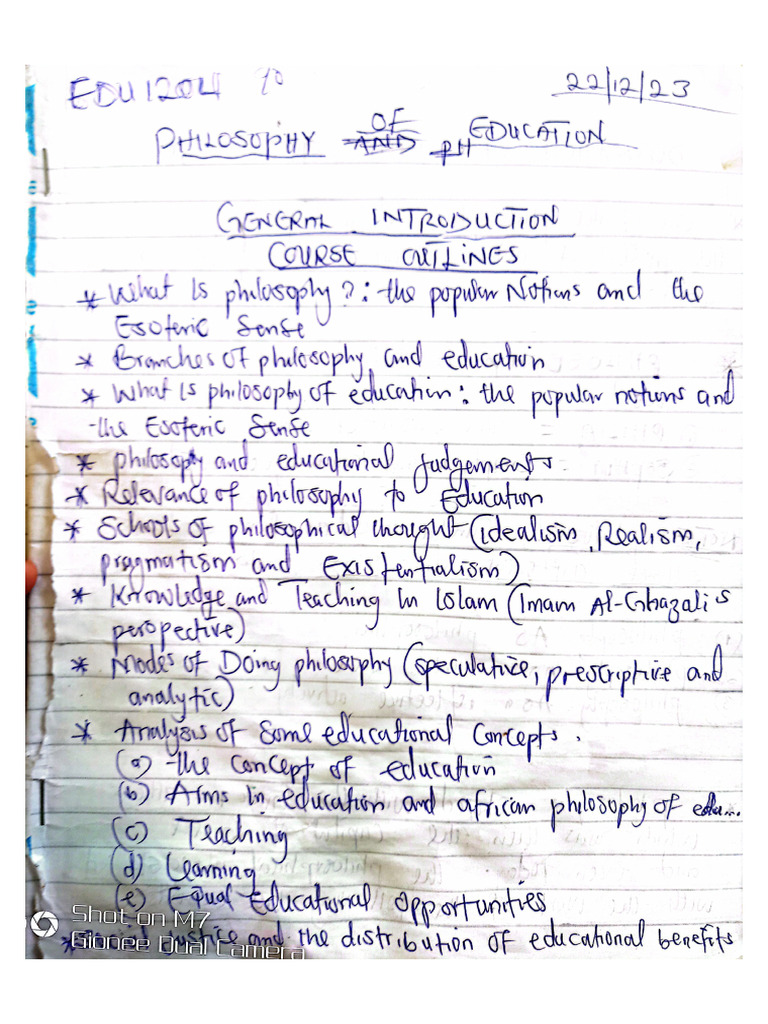 EDU1204
22/12/23
PHILOSOPHY AND OF PH EDUCATION
GENERAL INTRODUCTION
COURSE OUTLINES
* What Is philosophy?: the popular Notions and the
Esoteric Sense
* Branches of philosophy and education
* What Is philosophy of education: the popular notions and
the Esoteric Sense
* philosopy and educational Judgements
* Relevance of philosophy to Education
* Schools of philosophical thought (idealism, Realism,
pragmatism and Existentialism)
* Knowledge and Teaching In Islam (Imam Al-Ghazali's
perspective)
* Modes of Doing philosophy (speculative, prescriptive and
analytic)
* Analysis of Some educational Concepts.
(a) the concept of education
(b) Aims in education and african philosophy of edu...
(c) Teaching
(d) Learning
(e) Equal Educational Opportunities
* Social Justice and the distribution of educational benefits
Shot on M7
Gionee Dual Camera